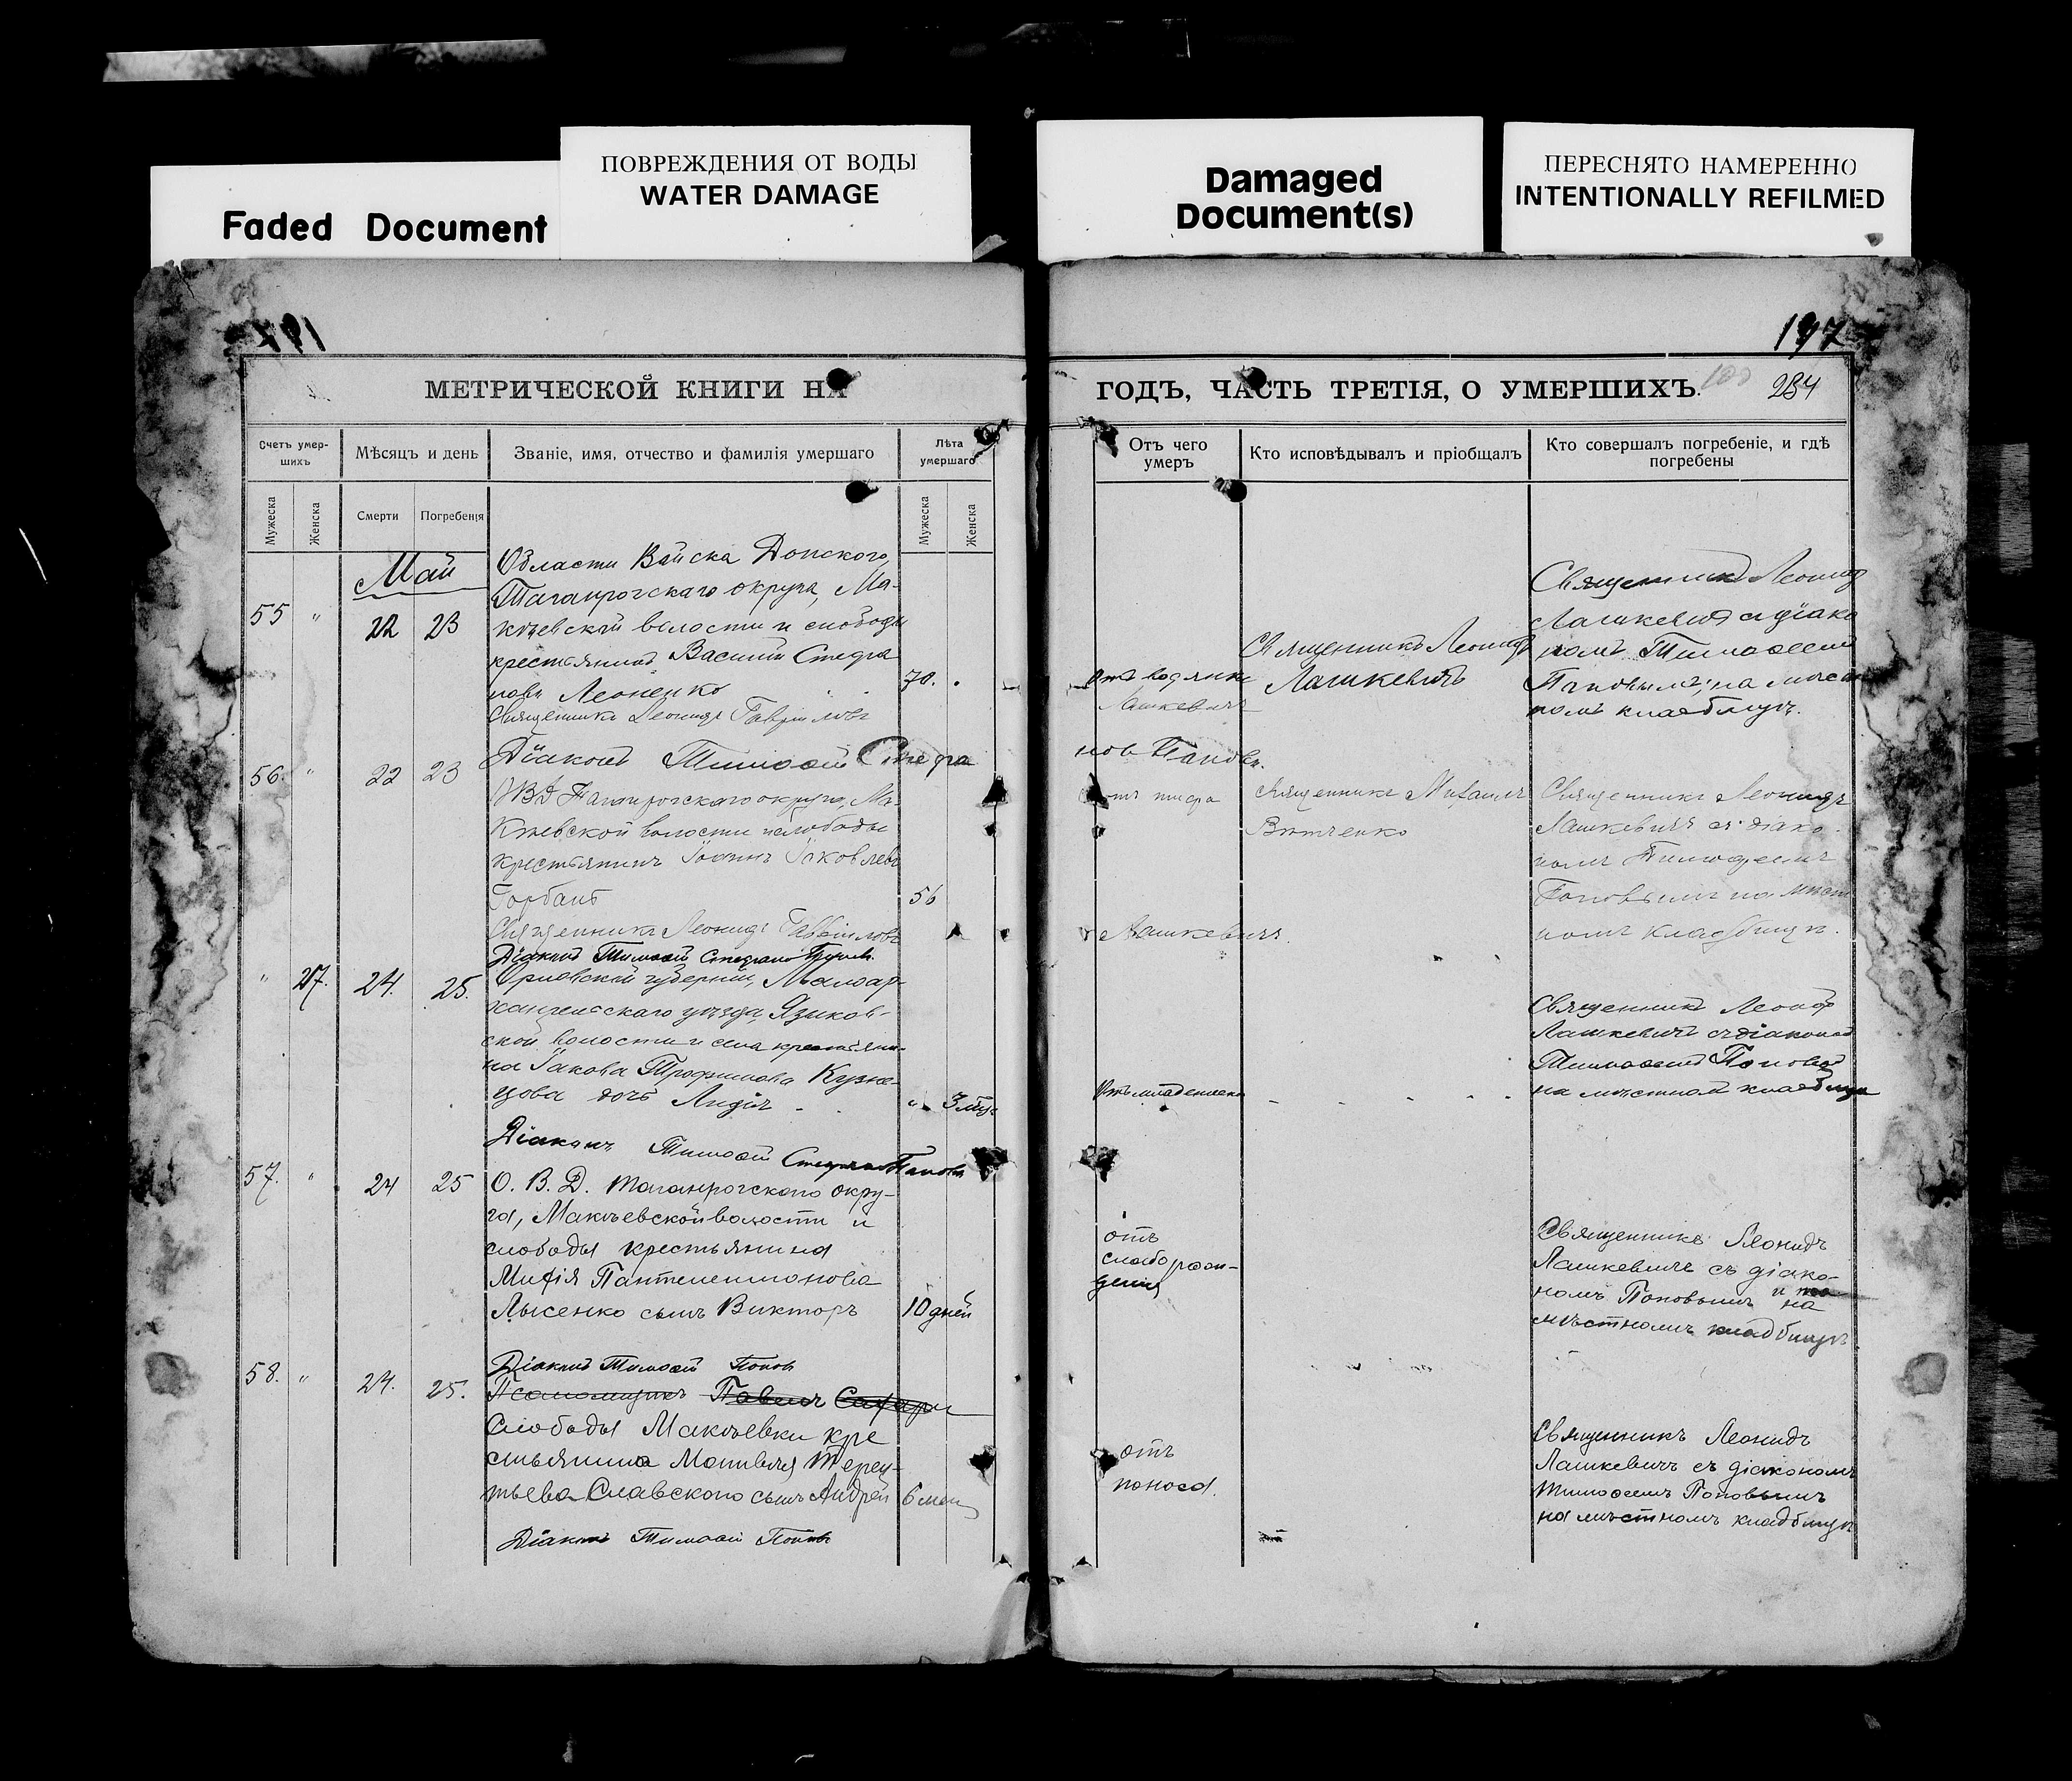 Faded Document
ПОВРЕЖДЕНИЯ ОТ ВОДЫ
WATER DAMAGE
Damaged
Document(s)
ПЕРЕСНЯТО НАМЕРЕННО
INTENTIONALLY REFILMED
197
МЕТРИЧЕСКОЙ КНИГИ НА
ГОДЪ, ЧАСТЬ ТРЕТІЯ, О УМЕРШИХЪ.
284
Счетъ умер-
шихъ
Мѣсяцъ и день
Званіе, имя, отчество и фамилія умершаго
Лѣта
умершаго
Отъ чего
умеръ
Кто исповѣдывалъ и пріобщалъ
Кто совершалъ погребеніе, и гдѣ
погребены
Мужеска
Женска
Смерти
Погребенія
Мужеска
Женска
Май
55 " 22 23
Области Войска Донского,
Таганрогскаго округа, Ма-
кѣевской волости и слободы
крестьянинъ Василій Стефа
новъ Леоненко
70.
Священникъ Леонидъ Гавріиловъ
Лашкевичъ
отъ водянки
Священникъ Леонидъ
Лашкевичъ
Священникъ Леонидъ
Лашкевичъ съ діако
номъ Тимоѳеемъ
Поповымъ, на мѣст
номъ кладбищѣ.
Діаконъ Тимоѳей Стефа
новъ Поповъ.
56. " 22 23
ОВД Таганрогскаго округа, Ма-
кѣевской волости и слободы
крестьянинъ Іоаннъ Іаковлевъ
Горбань
56
отъ тифа
Священникъ Михаилъ
Витченко
Священникъ Леонидъ
Лашкевичъ съ діако-
номъ Тимоѳеемъ
Поповымъ на мѣст
номъ кладбищѣ.
Священникъ Леонидъ Гавріиловъ
Лашкевичъ.
Діаконъ Тимоѳей Стефано Поповъ
" 27. 24. 25.
Орловской губерніи, Малоар-
хангельскаго уѣзда, Языков-
ской волости и села крестьяни-
на Іакова Трофимова Кузне-
цова дочь Лидія
" 3 мѣс
Отъ младенческ
Священникъ Леонидъ
Лашкевичъ съ діакономъ
Тимоѳеемъ Поповой
на мѣстной кладбище
Діаконъ Тимоѳей Стефано Поповъ
57. " 24 25
О. В. Д. Таганрогскаго окру-
га, Макѣевской волости и
слободы крестьянина
Мифія Пантелеимонова
Лысенко сынъ Викторъ
10 дней
отъ
слаборож-
денія
Священникъ Леонидъ
Лашкевичъ съ діако-
номъ Поповымъ на
мѣстномъ кладбищѣ.
Діаконъ Тимоѳей Поповъ
58. " 24. 25.
Псаломщикъ Павелъ
Слободы Макѣевки кре
стьянина Матвея Терен-
тьева Славского сынъ Андрей
6 мѣс
отъ
поноса.
Священникъ Леонидъ
Лашкевичъ съ діакономъ
Тимоѳеемъ Поповымъ
на мѣстномъ кладбищѣ
Діаконъ Тимоѳей Поповъ